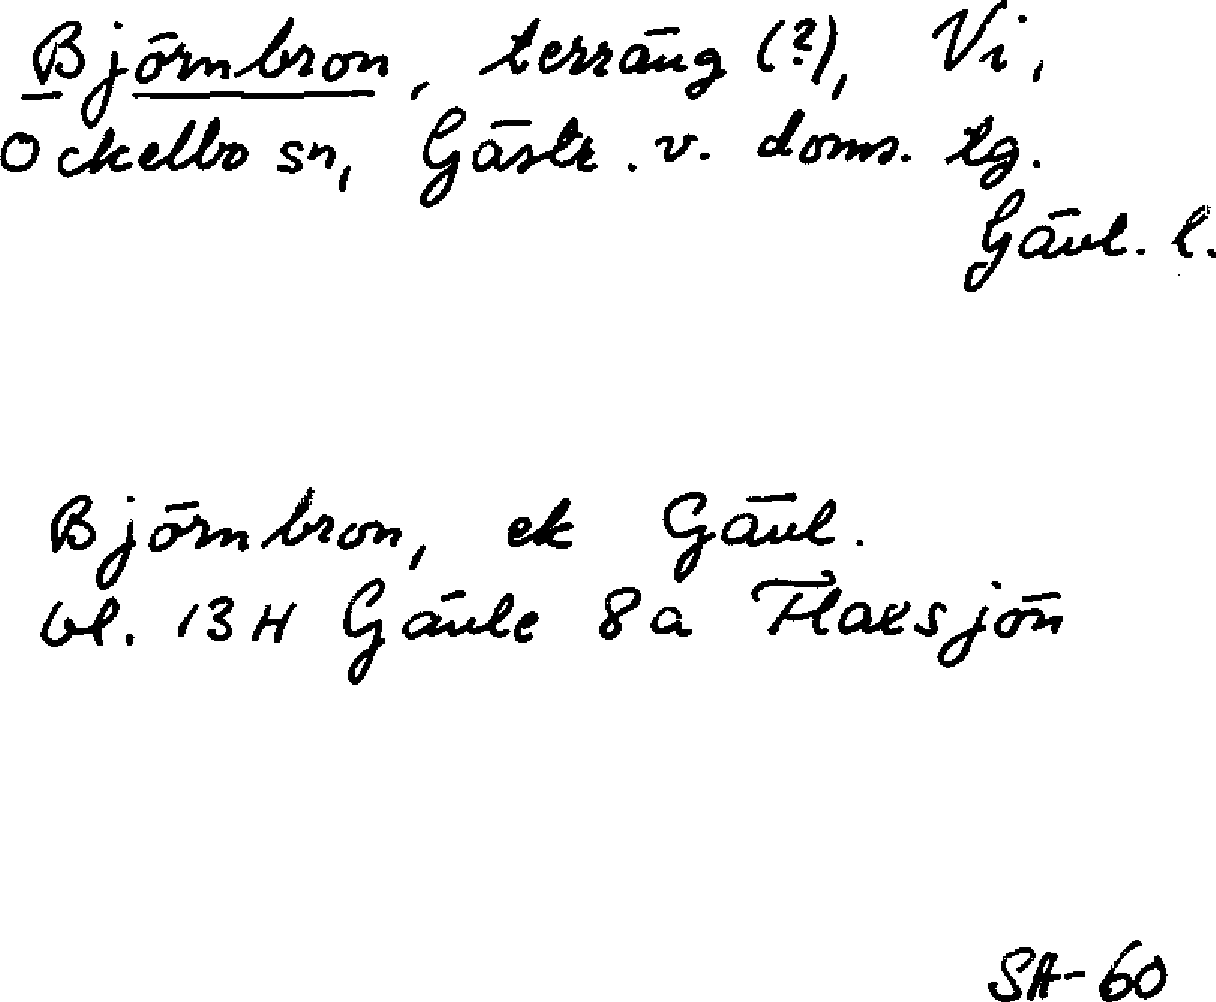 Björnbron, terräng (?), Vi,
Ockelbo sn, Gästr. v. doms. tg.
Gävl. l.
Björnbron, ek Gävl.
bl. 13H Gävle 8a Flaxsjön
SA-60